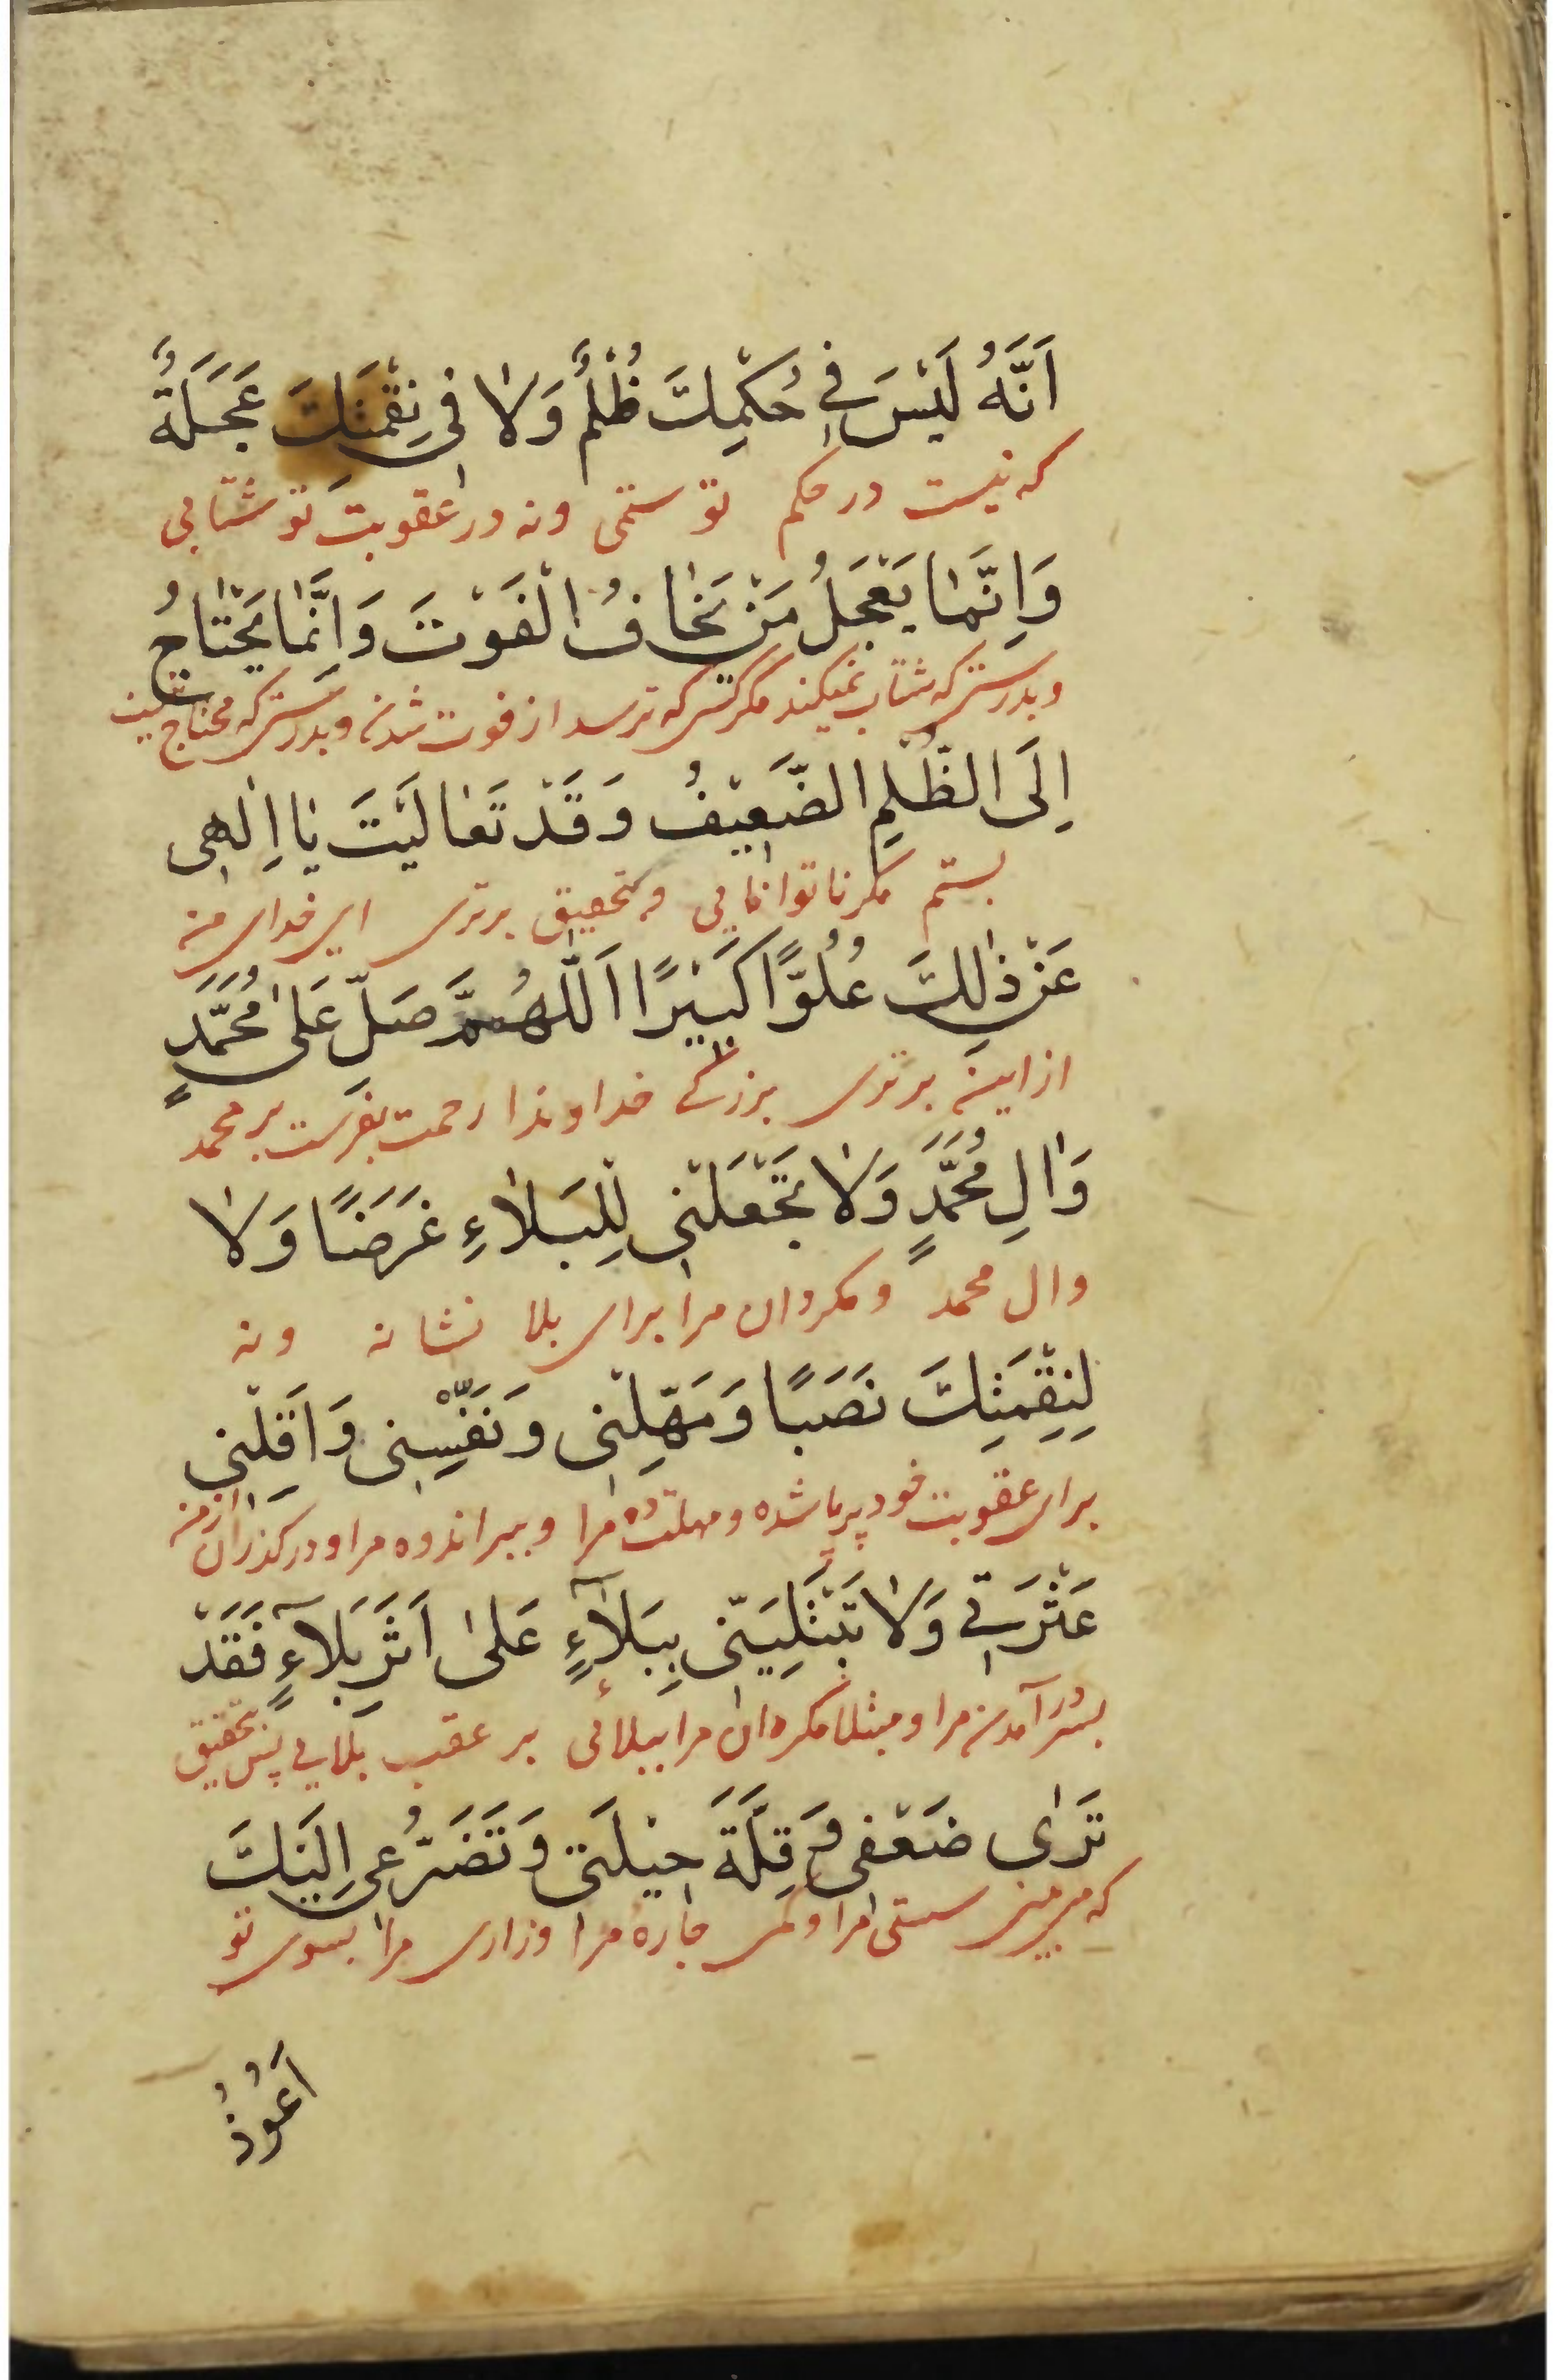 اَنَّهُ لَيْسَ فِي حُكْمِكَ ظُلْمٌ وَلاٰ فِي نِقْمَتِكَ عَجَلَةٌ
که نیست در حکم تو ستمی و نه در عقوبت تو شتابی
وَاِنَّمٰا يَعْجَلُ مَنْ يَخٰافُ الْفَوْتَ وَاِنَّمٰا يَحْتٰاجُ
و بدرستی که شتاب نمیکند مگر کسی که ترسد از فوت شدن و بدرستی که محتاج نیست
اِلَى الظُّلْمِ الضَّعِيْفُ وَقَدْ تَعٰالَيْتَ يٰا اِلٰهِى
بستم مگر ناتوانایی و بتحقیق برتری ای خدای من
عَنْ ذٰلِكَ عُلُوًّا كَبِيْرًا اَللّٰهُمَّ صَلِّ عَلىٰ مُحَمَّدٍ
از این برتری بزرگی خداوندا رحمت بفرست بر محمد
وَاٰلِ مُحَمَّدٍ وَلاٰ تَجْعَلْنِى لِلْبَلاٰءِ غَرَضًا وَلاٰ
وال محمد و مگردان مرا برای بلا نشانه و نه
لِنِقْمَتِكَ نَصَبًا وَمَهِّلْنِى وَنَفِّسْنِى وَاَقِلْنِى
برای عقوبت خود برپا شده و مهلت ده مرا و ببر اندوه مرا و در گذران از من
عَثْرَتِي وَلاٰ تَبْتَلِيَنِّى بِبَلاٰۤءٍ عَلىٰ اَثَرِ بَلاٰۤءٍ فَقَدْ
بسر در آمدن مرا و مبتلا مگردان مرا ببلائی بر عقب بلایی پس بتحقیق
تَرٰى ضَعْفِى وَقِلَّةَ حِيْلَتِى وَتَضَرُّعِى اِلَيْكَ
که می بینی سستی مرا و کمی چارهٔ مرا و زاری مرا بسوی تو
اَعُوْذُ